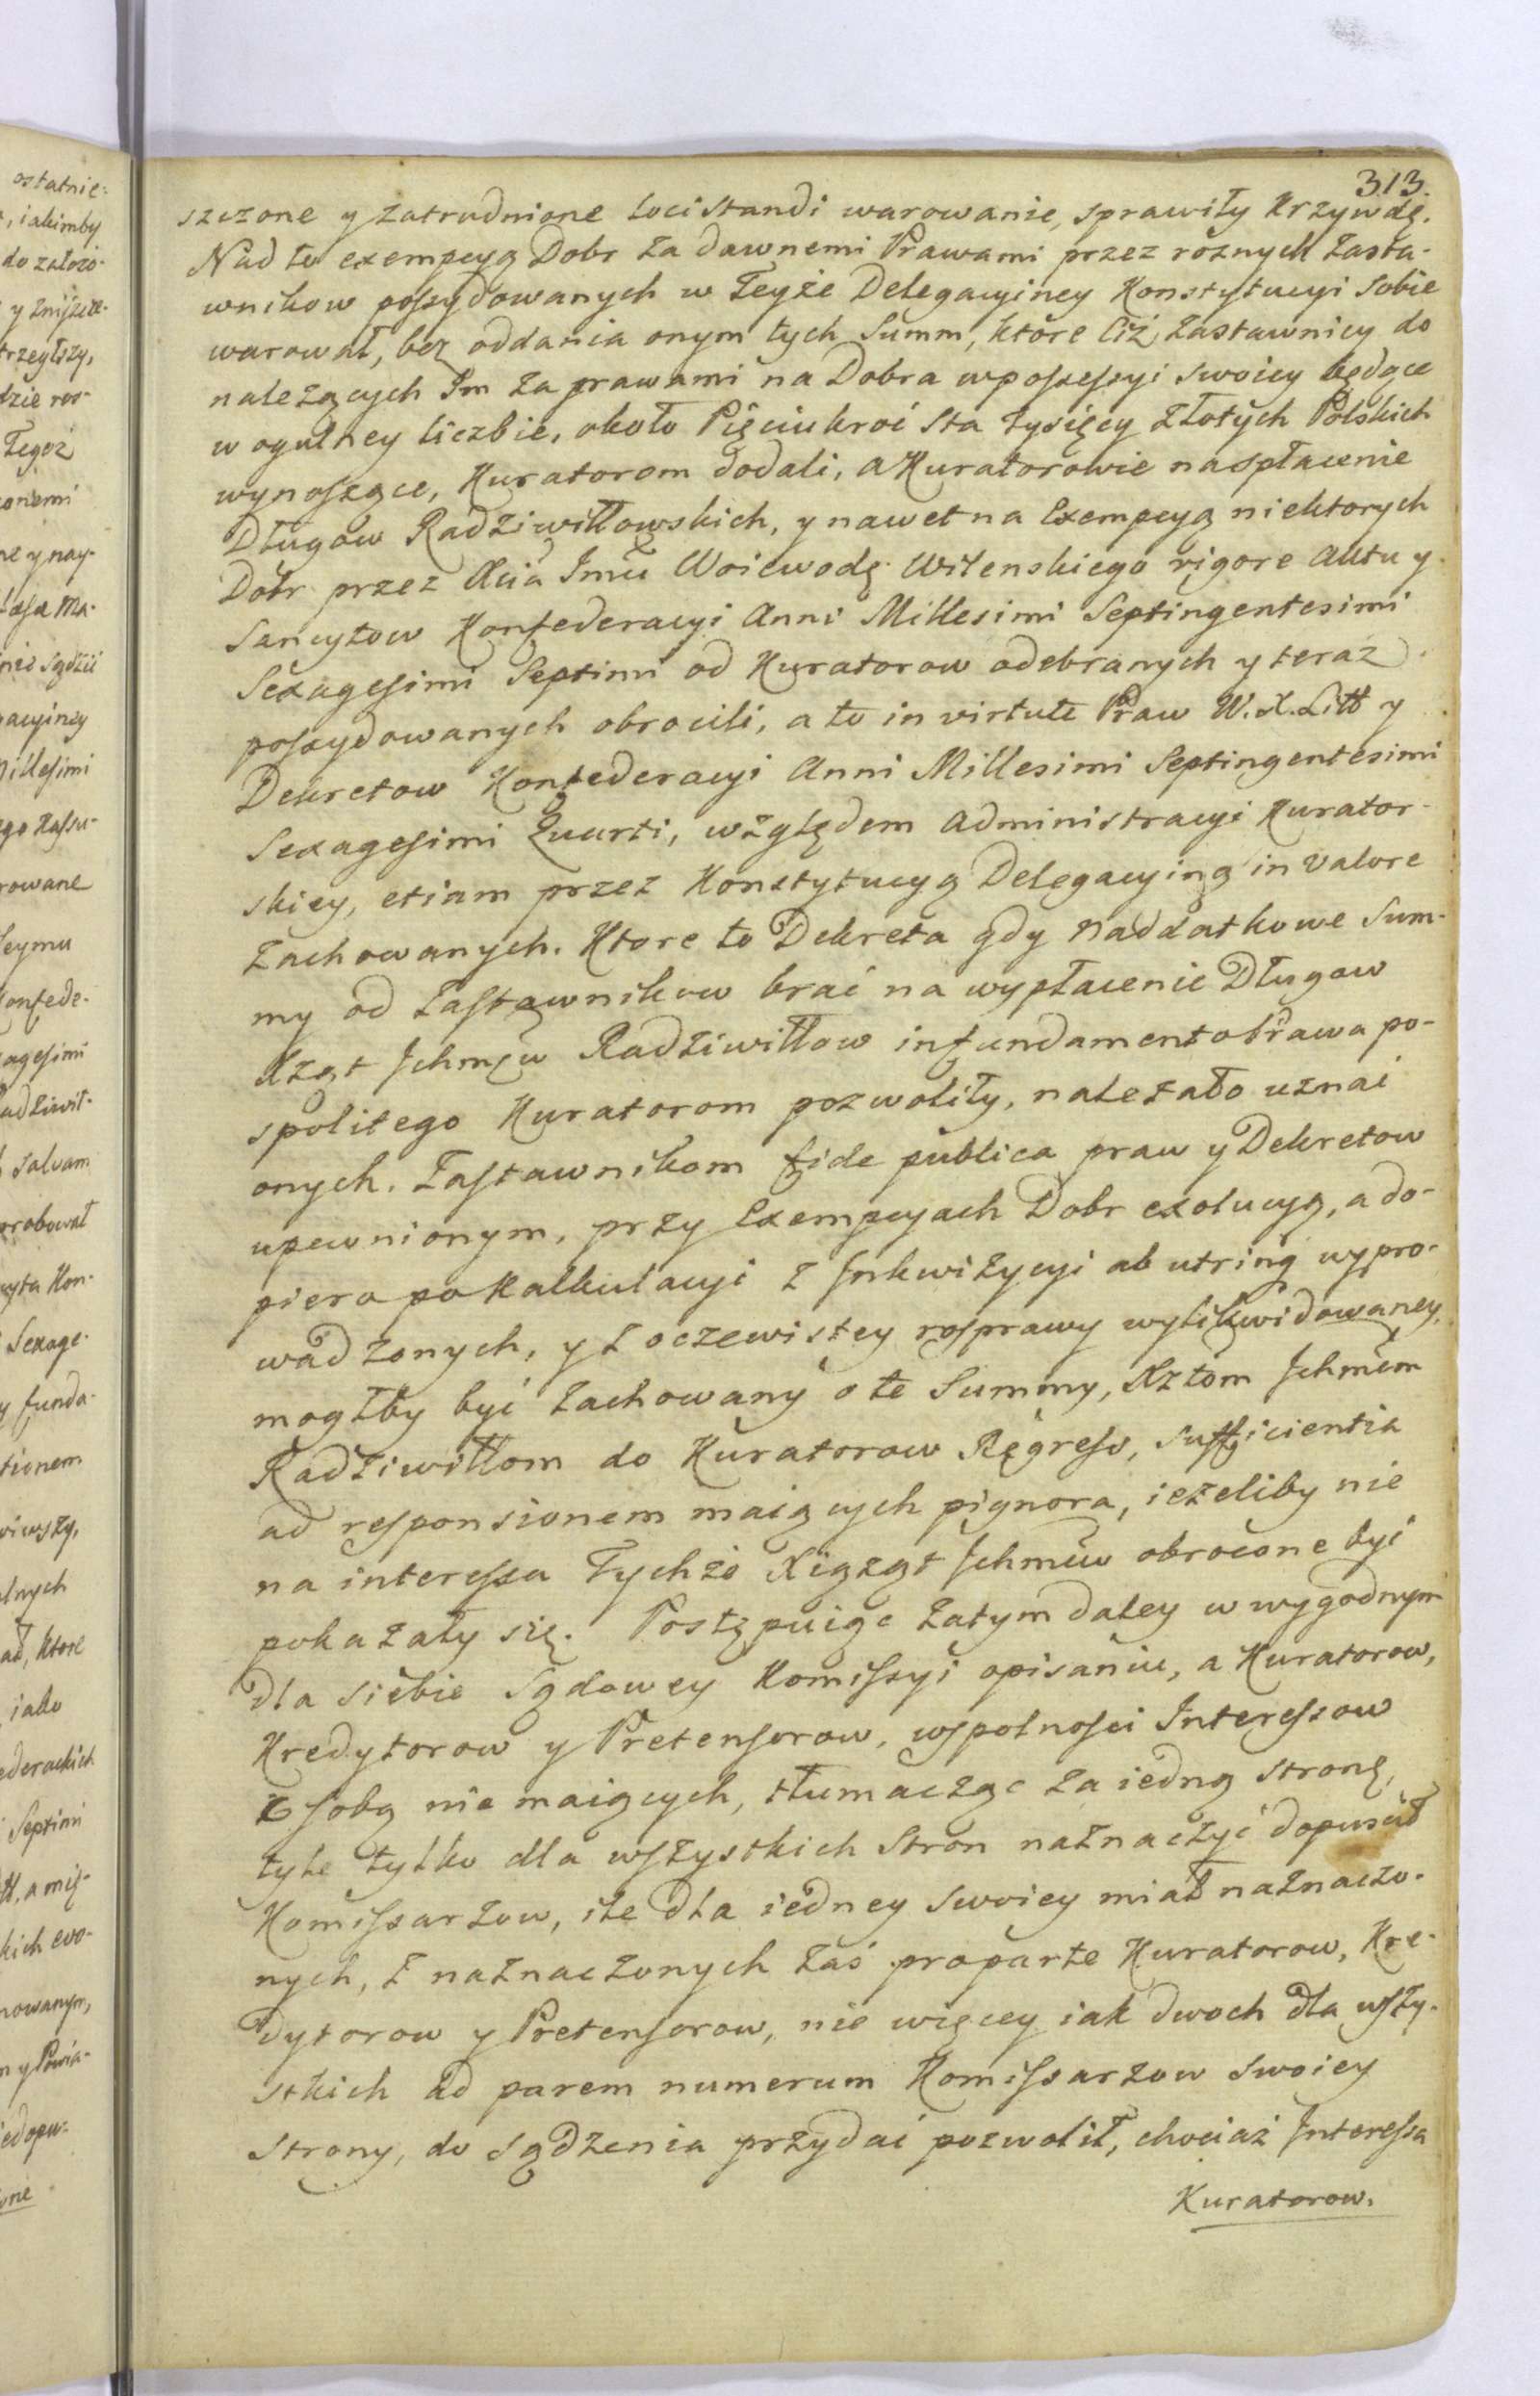 313.
szczone y zatrudnione locistandi warowanie, sprawiły krzywdę.
Nad to exempcyą Dobr za dawnemi Prawami przez roznych zasta-
wnikow possydowanych w teyże Delegacyiney Konstytucyi sobie
warował, bez oddania onym tych Summ, ktore Ciż zastawnicy do
należących Im za prawami na Dobra w possessyi swoiey będące
w ogulney liczbie, około Pięciukroć sta tysięcy złotych Polskich
wynoszące, Kuratorom dodali, a Kuratorowie na spłacenie
Długow Radziwiłłowskich, y nawet na Exempcyą niektorych
Dobr przez Xcia Jmci Woiewodę Wilenskiego rigore Aktu y
Sancytow Konfederacyi Anni Millesimi Septingentesimi
Sexagesimi Septimi od Kuratorow odebranych y teraz
possydowanych obrocili, a to in virtute Praw W. X. Litt y
Dekretow Konfederacyi Anni Millesimi Septingentesimi
Sexagesimi Quarti, względem administracyi Kurator-
skiey, etiam przez Konstytucyą Delegacyiną in valore
zachowanych. Ktore to Dekreta gdy naddatkowe Sum-
my od zastawnikow brać na wypłacenie Długow
Xząt Jchmciw Radziwiłłow in fundamento Prawa po-
spolitego Kuratorom pozwoliły, należało uznać
onych. Zastawnikom fide publica praw y Dekretow
upewnionym, przy Exempcyach Dobr exolucyą, a do-
piero po Kalkulacyi z Jnkwizycyi ab utrinq wypro-
wadzonych, y z oczewistey rosprawy wylikwidowaney,
mogłby być zachowany o te Summy, Xztom Jchmćm
Radziwiłłom do Kuratorow Regress, sufficientia
ad responsionem maiących pignora, ieżeliby nie
na interessa Tychże Xiążąt Jchmciw obrocone być
pokazały się. Postępuiąc zatym daley w wygodnym
dla siebie Sądowey Komissyi opisaniu, a Kuratorow,
Kredytorow y Pretensorow, wspolności Interessow
z sobą nie maiących, tłumacząc za iedną stronę,
tyle tylko dla wszystkich Stron naznaczyć dopuścił
Komissarzow, ile dla iedney swoiey miał naznaczo-
nych, z naznaczonych zaś pro parte Kuratorow, Kre-
dytorow y Pretensorow, nie więcey iak dwoch dla wszy-
stkich ad parem numerum Komissarzow swoiey
strony, do sądzenia przydać pozwolił, chociaż Jnteressa
Kuratorow.